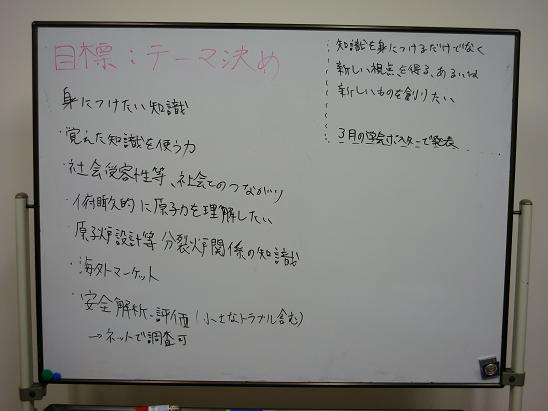 目標:テーマ決め
身につけたい知識
・覚えた知識を使う力
・社会受容性等、社会とのつながり
・俯瞰的に原子力を理解したい
・原子炉設計等 分裂炉関係の知識
・海外マーケット
・安全解析・評価(小さなトラブル含む)
→ネットで調査可
知識を身につけるだけでなく
新しい視点を得る、あるいは
新しいものを創りたい
3月の学会ポスターで発表